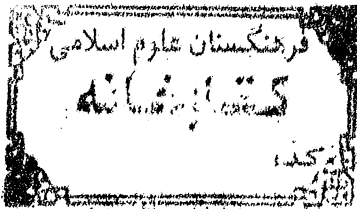 فرهنگستان علوم اسلامی
کتابخانه